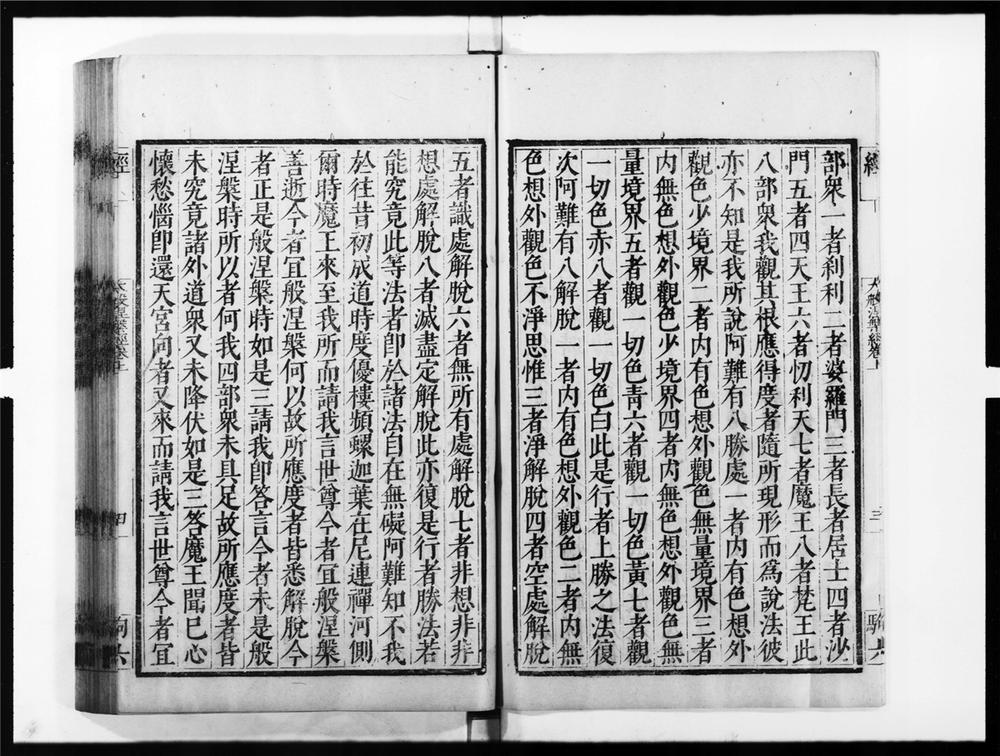 部衆一者刹利二者婆羅門三者長者居士四者沙
門五者四天王六者忉利天七者魔王八者梵王此
八部衆我觀其根應得度者隨所現形而爲說法彼
亦不知是我所說阿難有八勝處一者内有色想外
觀色少境界二者内有色想外觀色無量境界三者
内無色想外觀色少境界四者内無色想外觀色無
量境界五者觀一切色青六者觀一切色黃七者觀
一切色赤八者觀一切色白此是行者上勝之法復
次阿難有八解脫一者内有色想外觀色二者内無
色想外觀色不淨思惟三者淨解脫四者空處解脫
五者識處解脫六者無所有處解脫七者非想非非
想處解脫八者滅盡定解脫此亦復是行者勝法若
能究竟此等法者卽於諸法自在無礙阿難知不我
於往昔初成道時度優樓頻螺迦葉在尼連禪河側
爾時魔王來至我所而請我言世尊今者宜般涅槃
善逝今者宜般涅槃何以故所應度者皆悉解脫今
者正是般涅槃時如是三請我卽答言今者未是般
涅槃時所以者何我四部衆未具足故所應度者皆
未究竟諸外道衆又未降伏如是三答魔王聞已心
懷愁惱卽還天宮向者又來而請我言世尊今者宜
經